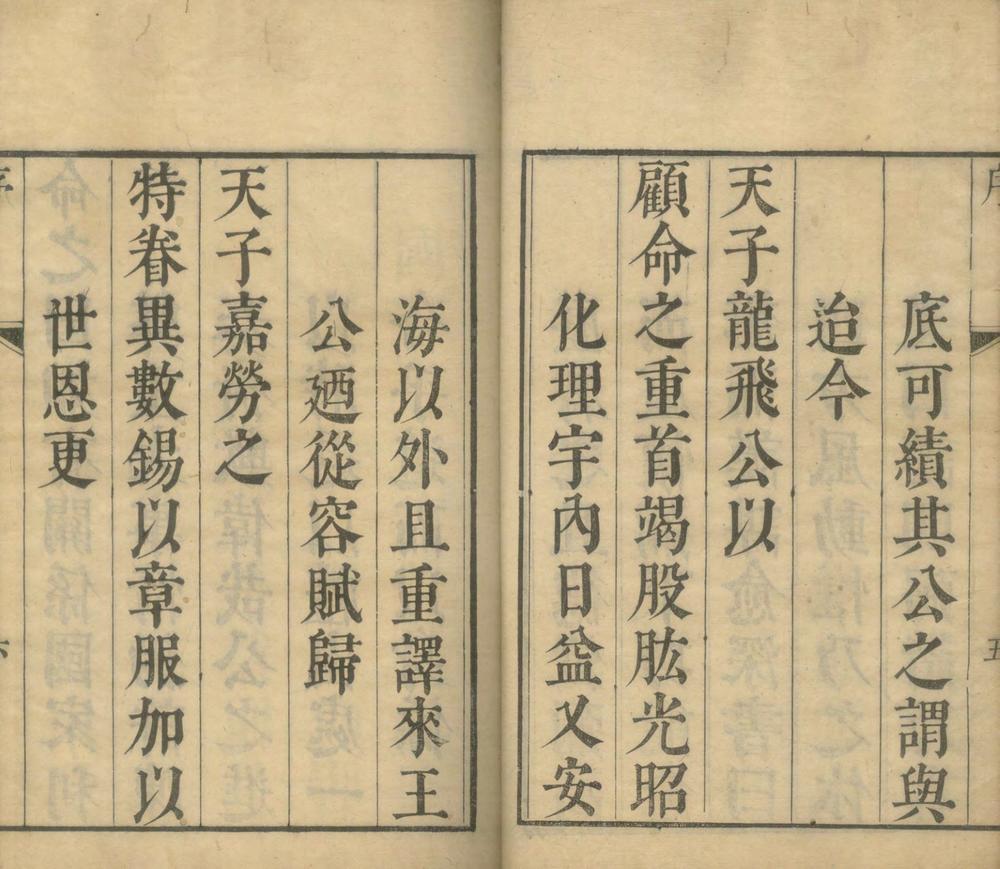 底可績其公之謂與
迨今
天子龍飛公以
顧命之重首竭股肱光昭
化理宇內日益乂安
海以外且重譯來王
公廼從容賦歸
天子嘉勞之
特眷異數錫以章服加以
世恩更